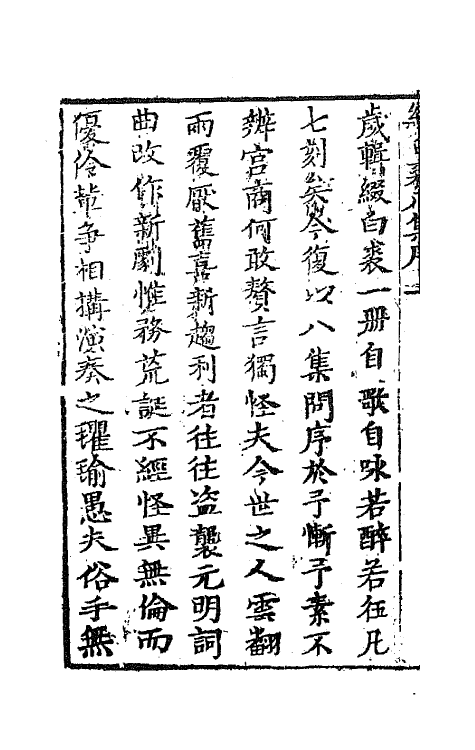 歲輯綴白裘一册自歌自咏若醉若狂凡
七刻矣今復以八集問序於予慚予素不
辨宫商何敢贅言獨怪夫今世之人雲翻
雨覆厭舊喜新趨利者往往盜襲元明詞
曲改作新劇惟務荒誕不經怪異無倫而
優伶輩争相搆演奏之瓘瑜愚夫俗手無